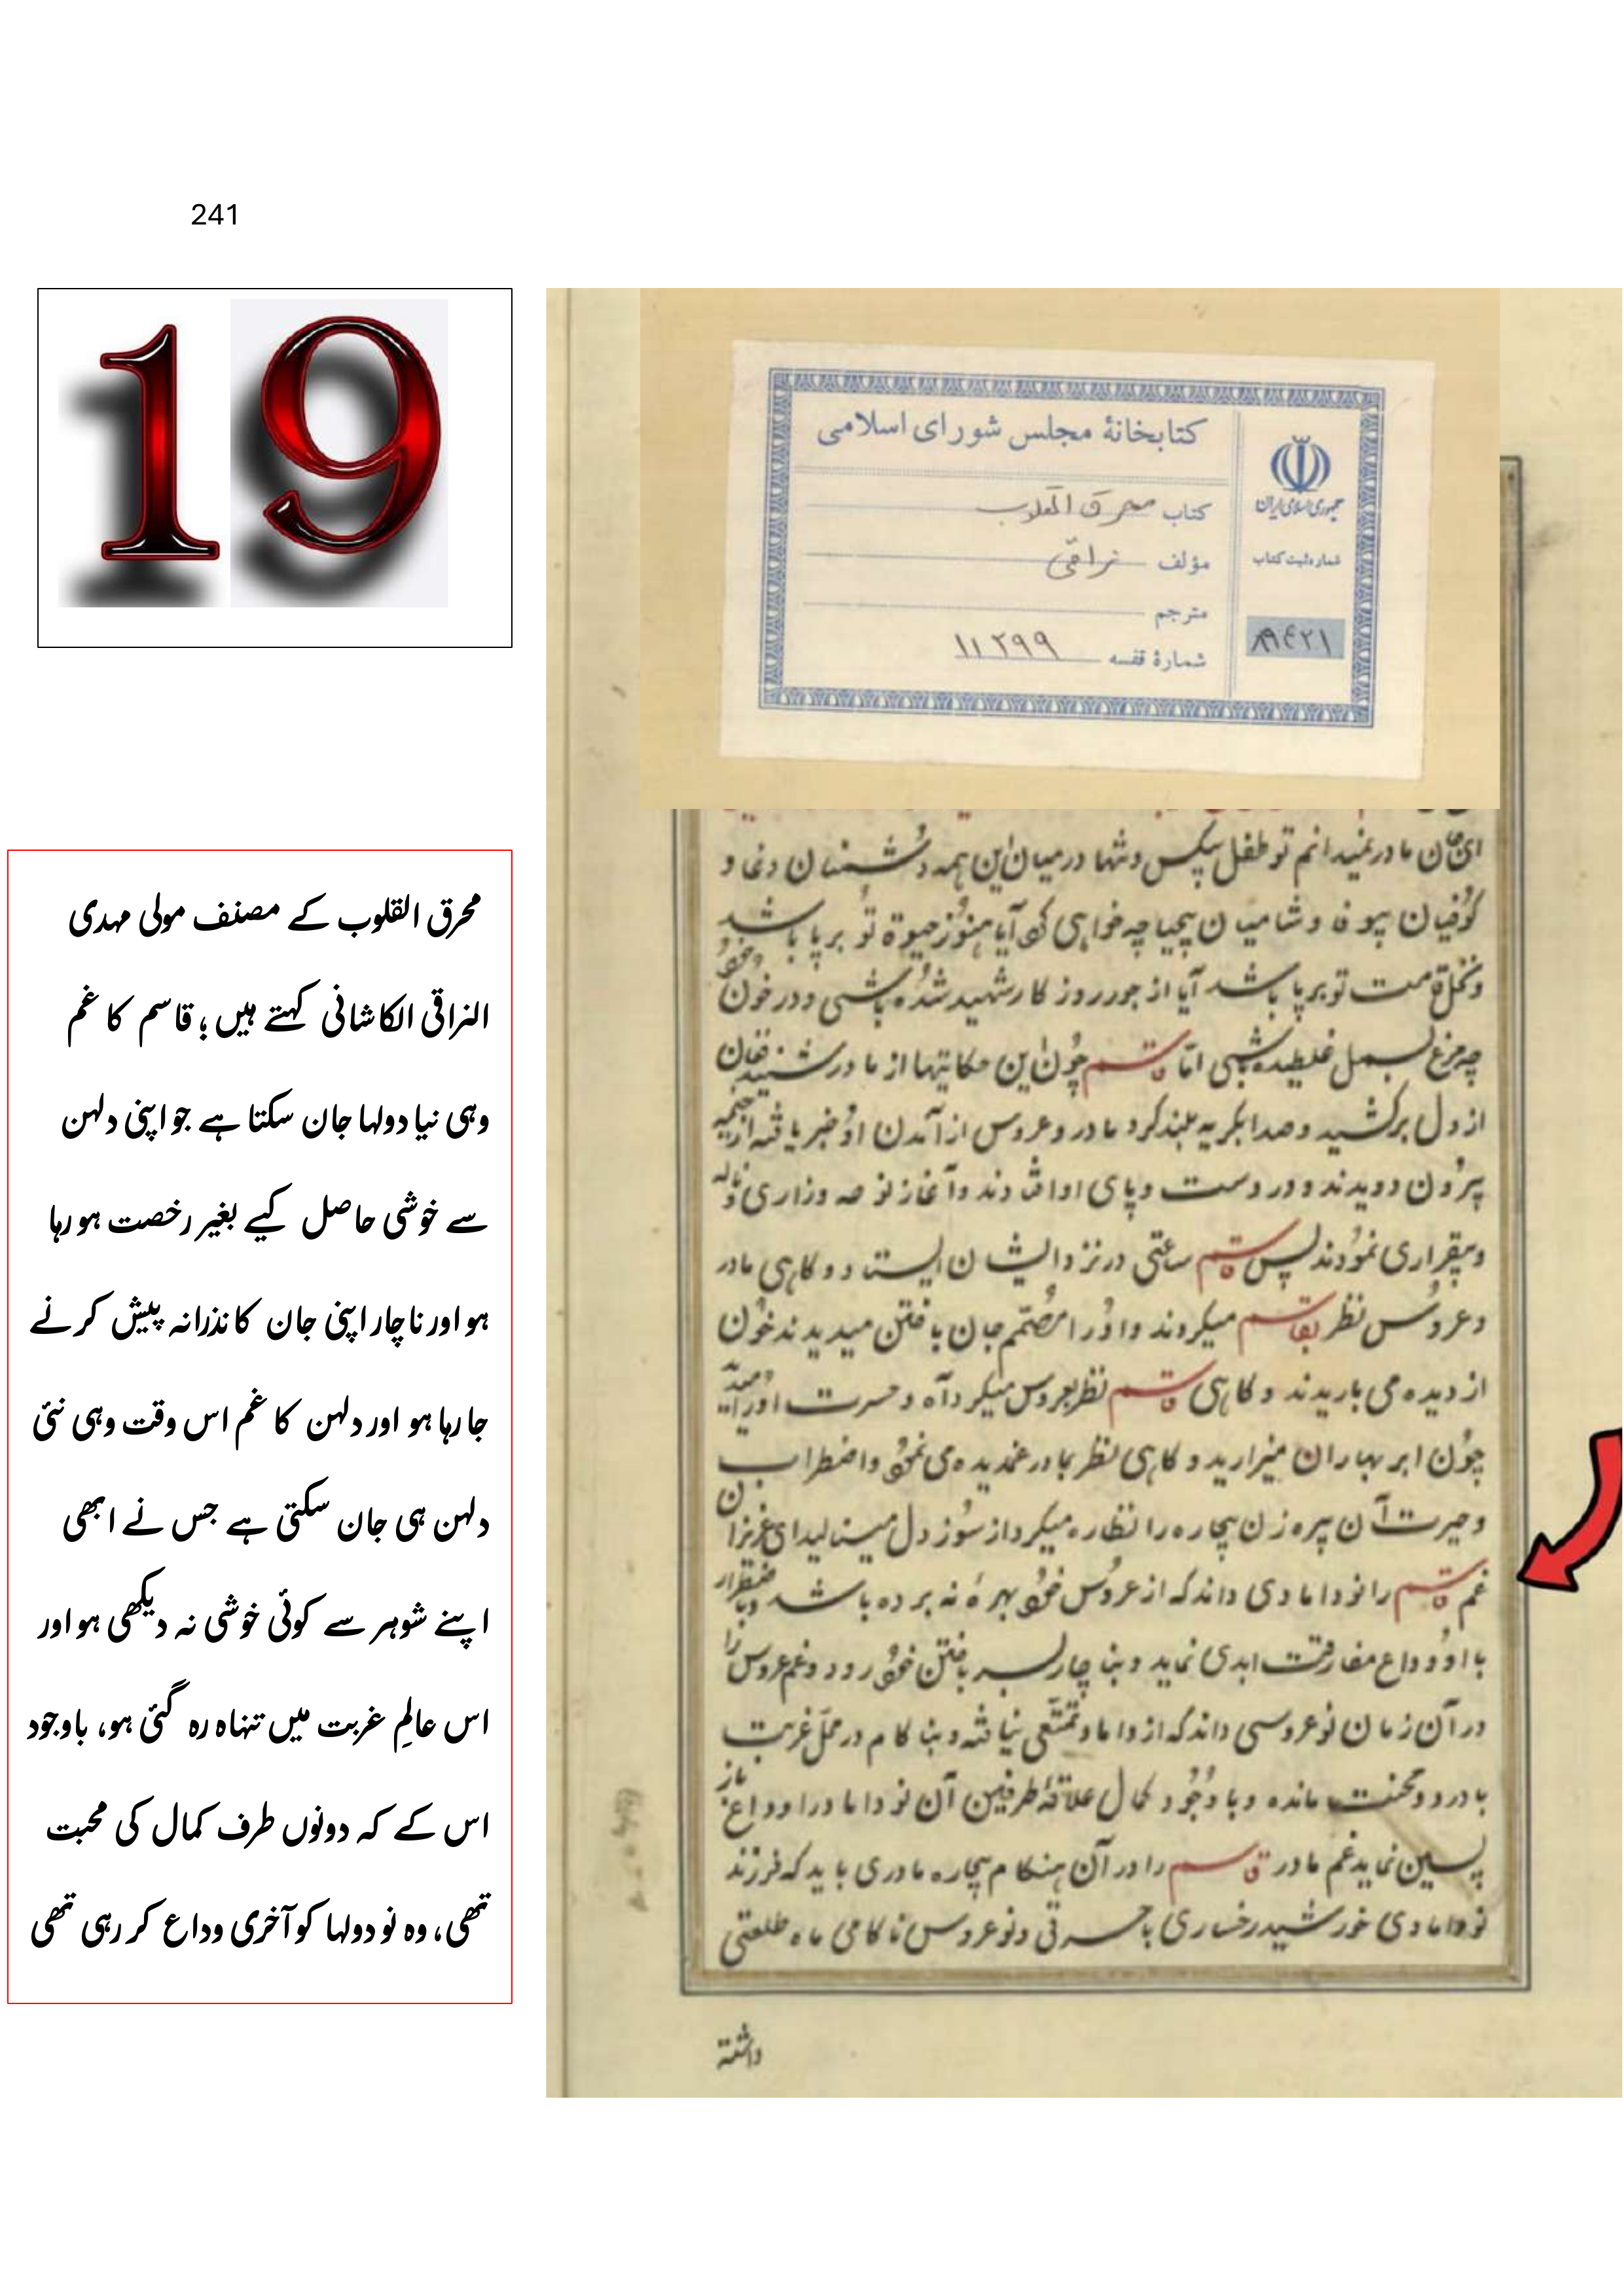 241
19
محرق القلوب کے مصنف مولی مہدی
النراقی الکاشانی کہتے ہیں؛ قاسم کا غم
وہی نیا دولہا جان سکتا ہے جو اپنی دلہن
سے خوشی حاصل کیے بغیر رخصت ہو رہا
ہو اور ناچار اپنی جان کا نذرانہ پیش کرنے
جا رہا ہو اور دلہن کا غم اس وقت وہی نئی
دلہن ہی جان سکتی ہے جس نے ابھی
اپنے شوہر سے کوئی خوشی نہ دیکھی ہو اور
اس عالمِ غربت میں تنہاہ رہ گئی ہو، باوجود
اس کے کہ دونوں طرف کمال کی محبت
تھی، وہ نو دولہا کو آخری وداع کر رہی تھی
کتابخانهٔ مجلس شورای اسلامی
کتاب محرق القلوب
مؤلف نراقی
مترجم
شمارهٔ قفسه ۱۱۲۹۹
جمهوری اسلامی ایران
شماره ثبت کتاب
۸۹۴۲۱
ای جان مادر نمیدانم تو طفل بیکس و تنها در میان این همه دشمنان دغا و
کوفیان بیوفا و شامیان بیحیا چه خواهی کرد آیا هنوز حیوة تو برپا باشد
و نخل قامت تو برپا باشد آیا از جور روزکار شهید شده باشی و در خون خود
چه مرغ بسمل غلطیده باشی امّا قاسم چون این حکایتها از مادر شنید فغان
از دل برکشید و صدا بکریه بلند کرد مادر و عروس از آمدن او خبر یافته از خیمه
بیرون دویدند و در دست و پای او افتادند و آغاز نوحه وزاری و ناله
و بیقراری نمودند پس قاسم ساعتی در نزد ایشان ایستاد و کاهی مادر
و عروس نظر بقاسم میکردند و او را مصمّم جان باختن میدیدند خون
از دیده می باریدند و کاهی قاسم نظر بعروس میکرد آه و حسرت او را میدید
چون ابر بهاران میزارید و کاهی نظر بمادر غمدیده می نمود و اضطراب
و حیرت آن پیره زن بیچاره را نظاره میکرد از سوز دل مینالید ای عزیزان
غم قاسم را نو دامادی داند که از عروس خود بهرهٔ نه برده باشد و باضطرار
با او وداع مفارقت ابدی نماید و بنا چار بسر باختن خود رود و غم عروس را
در آن زمان نوعروسی داند که از داماد تمتّعی نیافته و بنا کام در محلّ غربت
با درد و محنت مانده و با وجود کمال علاقهٔ طرفین آن نو داماد را وداع باز
پسین نماید غم مادر قاسم را در آن هنکام بیچاره مادری باید که فرزند
نو دامادی خورشید رخساری با حسرتی و نوعروس ناکامی ماه طلعتی
داشته